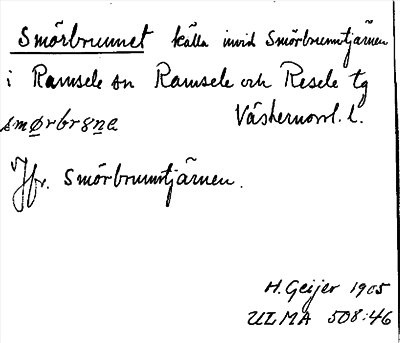 Smörbrunnet källa invid Smörbrunntjärnen
i Ramsele sn Ramsele och Resele tg
smørbr8ne Västernorrl. l.
Jfr. Smörbrunntjärnen.
H. Geijer 1905
ULMA 508:46